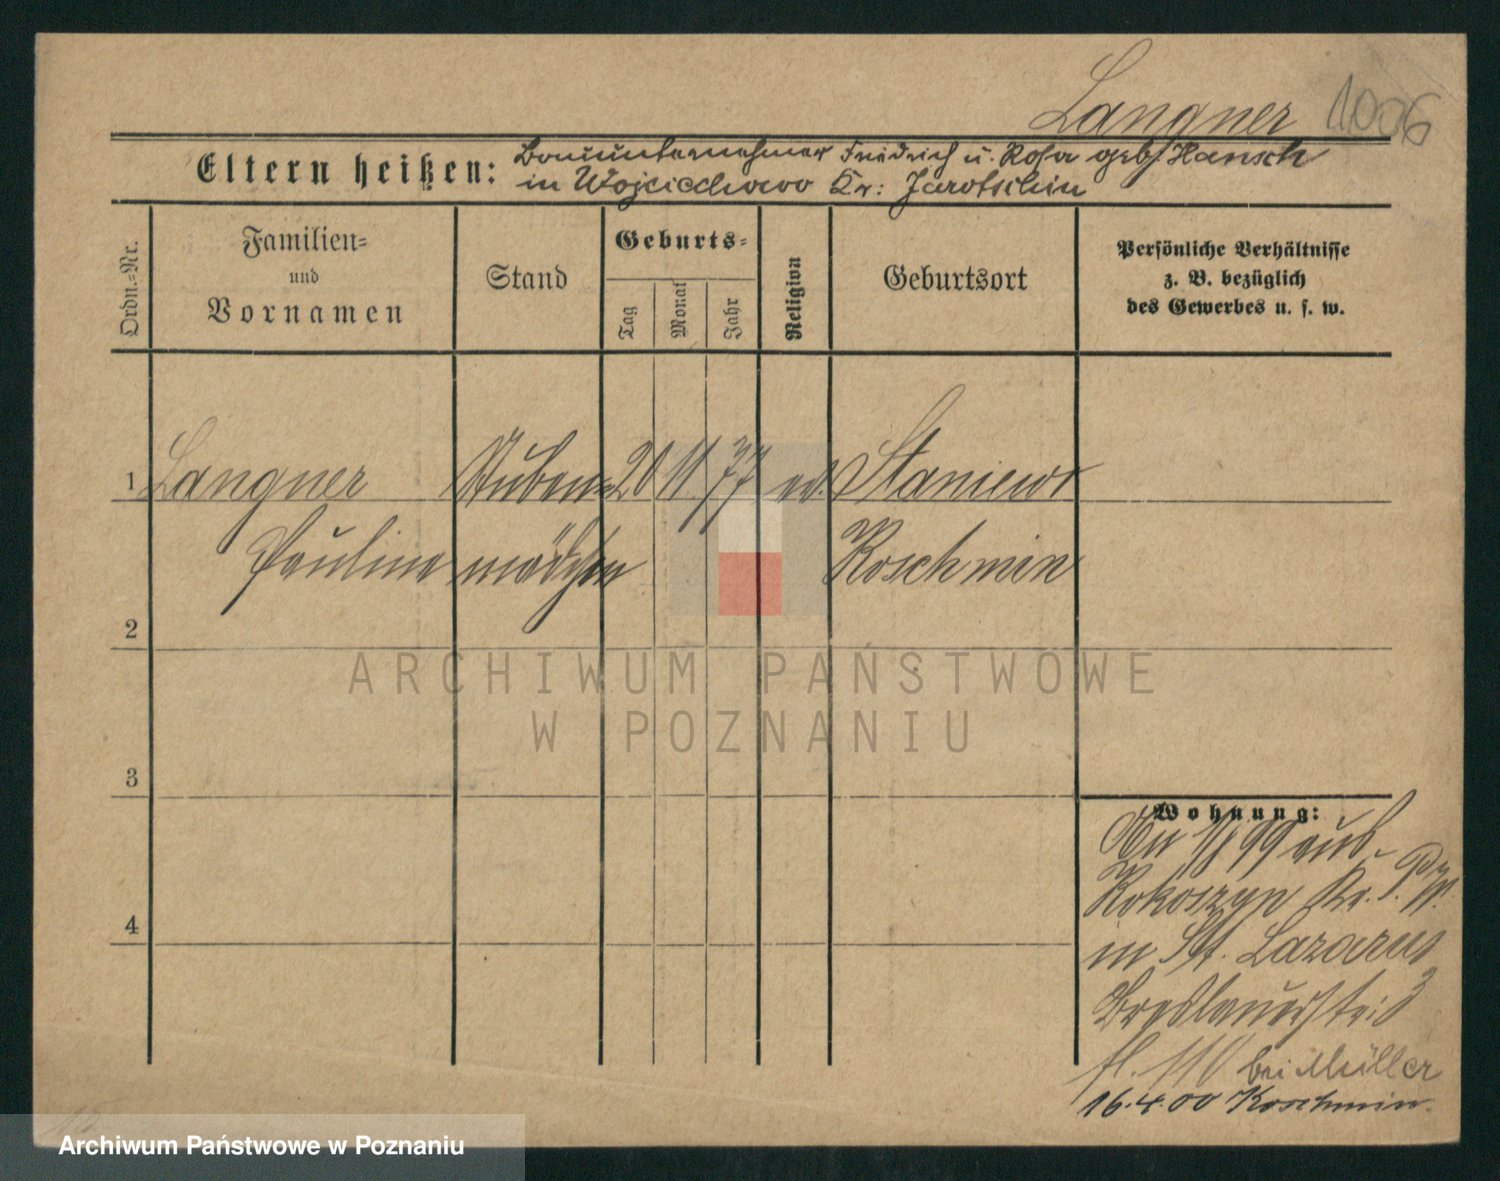 Langner 1006
Eltern heißen: Bauunternehmer Friedrich u. Rosa geb. Hansch
in Wojciechowo Kr: Jarotschin
Ordn.-Nr.
Familien-
und
Vornamen
Stand
Geburts-
Tag
Monat
Jahr
Religion
Geburtsort
Persönliche Verhältnisse
z. B. bezüglich
des Gewerbes u. s. w.
1 Langner Stuben- 20 11 77 ev. Staniewo
Pauline mädchen Koschmin
2
3
4
Wohnung:
99 aus
Kokoszyn Kr. P. W.
in St. Lazarus
Breslauerstr. 3
bei Müller
16.4.00 Koschmin.
ARCHIWUM PAŃSTWOWE
W POZNANIU
Archiwum Państwowe w Poznaniu